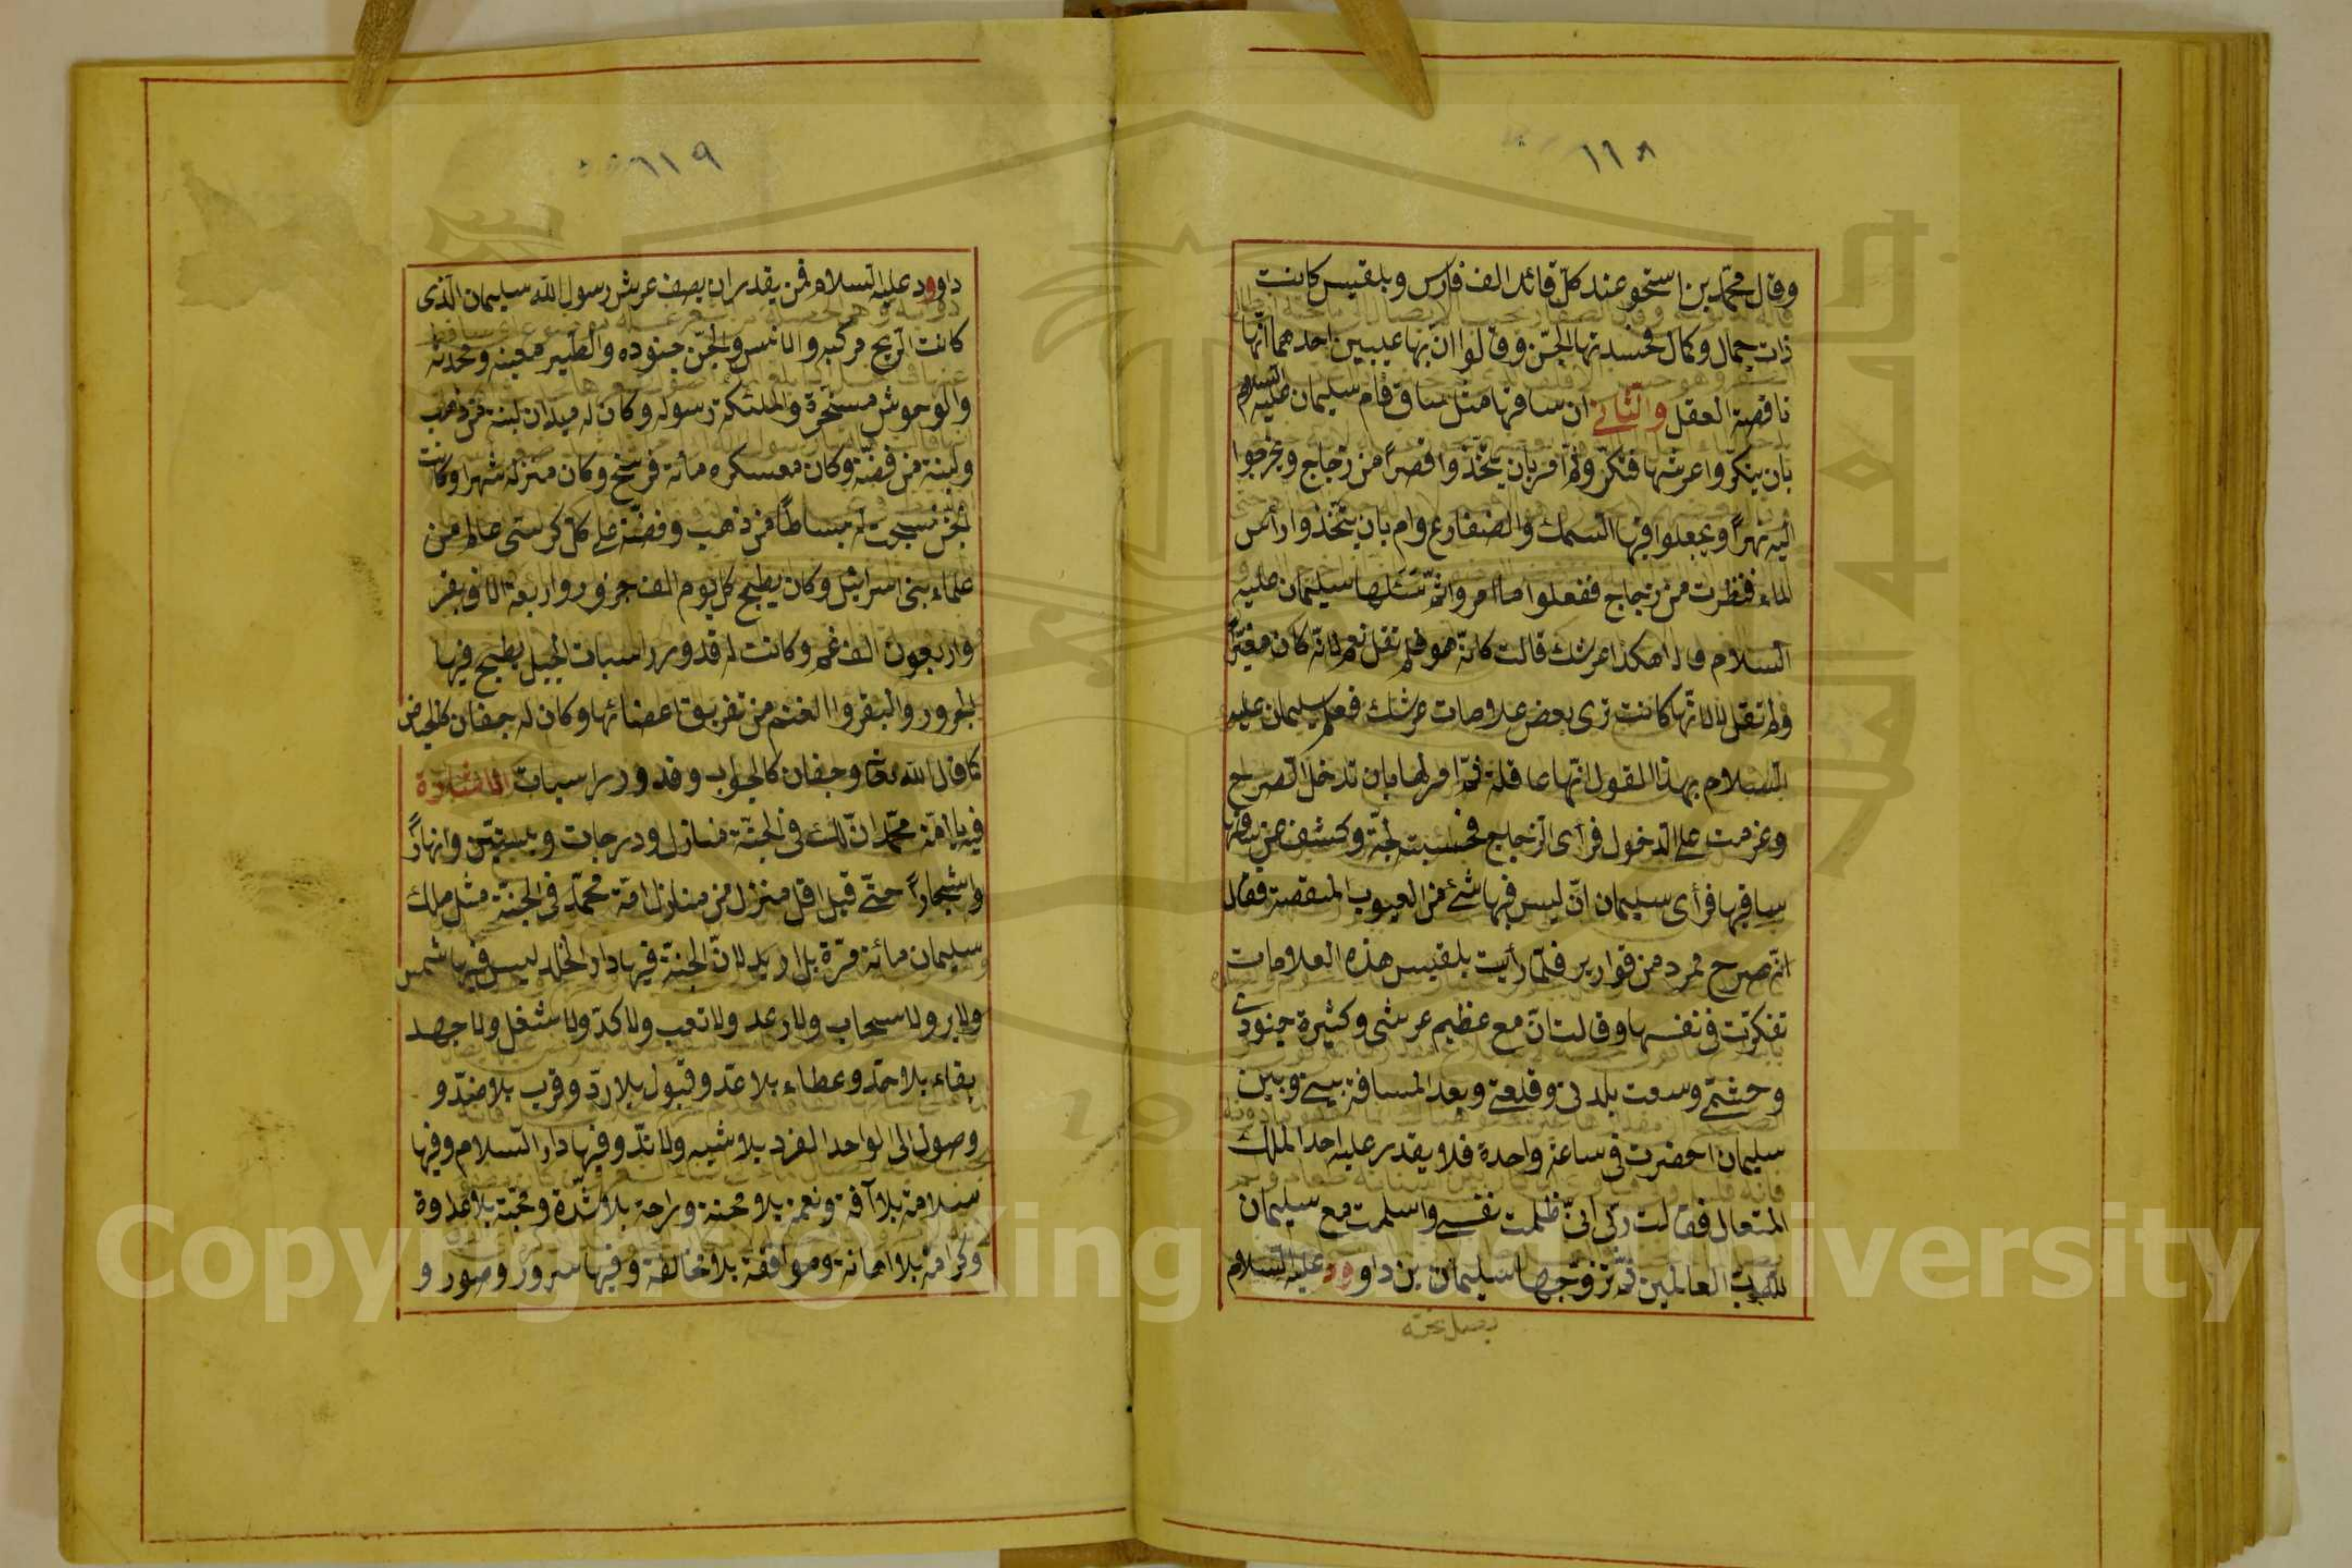 ١١٨
وقال محمد بن اسحق عند كل قائد الف فارس وبلقيس كانت
ذات جمال وكمال فحسدتها الجن وقالوا ان بها عيبين احدهما انها
ناقصة العقل والثاني ان ساقها مثل ساق فام سليمان عليه السلام
بان ينكروا عرشها فنكروا ثم امر بان يتخذوا قصراً من زجاج ويخرجوا
اليه نهراً ويجعلوا فيها السمك والضفادع وام بان يتخذوا رأس
الماء من زجاج ففعلوا ما امروا ثم سليمان عليه
السلام قال اهكذا عرشك قالت كانه هو فلم تقل نعم لانه كان مغيراً
ولم تقل لا لانها كانت ترى بعض علامات عرشك فعلم سليمان عليه
السلام بهذا المقول انها عاقلة ثم امر لها بان تدخل الصرح
وعزمت على الدخول فرأى الزجاج فحسبته لجة وكشف عن
ساقيها فرأى سليمان ان ليس فيها شئ من العيوب المنقصة فقال
انه صرح ممرد من قوارير فلما رأيت بلقيس هذه العلامات
تفكرت في نفسها وقالت ان مع عظيم عرشي وكثيرة جنودي
وحشمتي وسعت بلدتي وقلعتي وبعد المسافة بيني وبين
سليمان احضرت في ساعة واحدة فلا يقدر عليه احد الملك
المتعال فقالت ربي اني ظلمت نفسي واسلمت مع سليمان
لله رب العالمين ثم تزوجها سليمان بن داوود عليه السلام
١١٩
داوود عليه السلام فمن يقدر ان يصف عرش رسول الله سليمان الذى
كانت الريح مركبه والانس والجن جنوده والطير معينه ومحدثه
والوحوش مسخرة والملئكة رسوله وكان له ميدان لبنة من ذهب
ولبنة من فضة وكان معسكره مأة فرسخ وكان منزله شهرا وكانت
الجن نسجت له بساطاً من ذهب وفضة على كل كرستى عالم من
علماء بنى اسرائيل وكان يطبخ كل يوم الف جزور واربعة الاف بقر
واربعون الف غنم وكانت له قدور راسيات الجبل يطبخ فيها
الجرور والبقر والغنم من تفريق اعضائها وكان له جفان كالحياض
كما قال الله تعا وجفان كالجواب وقدور راسيات الاشارة
فيه يا امة محمد ان لك في الجنة منازل ودرجات وبساتين وانهاراً
واشجاراً حتى قيل اقل منزل من منازل امة محمد في الجنة مثل ملك
سليمان مائة مرة بل ازيد لان الجنة فيها دار الخلد ليس فيها شمس
ولا بر ولا سحاب ولا رعد ولا تعب ولا كد ولا شغل ولا جهد
بقاء بلا حد وعطاء بلا عد وقبول بلا رد وقرب بلا ضد و
وصول الى الواحد الفرد بلا شبه ولا ند وفيها دار السلام وفيها
سلامة بلا آفة ونعمة بلا محنة وراحة بلا شدة ومحبة بلا عداوة
وكرامة بلا اهانة وموافقة بلا مخالفة وفيها سرور وصور و
Copyright © King Saud University